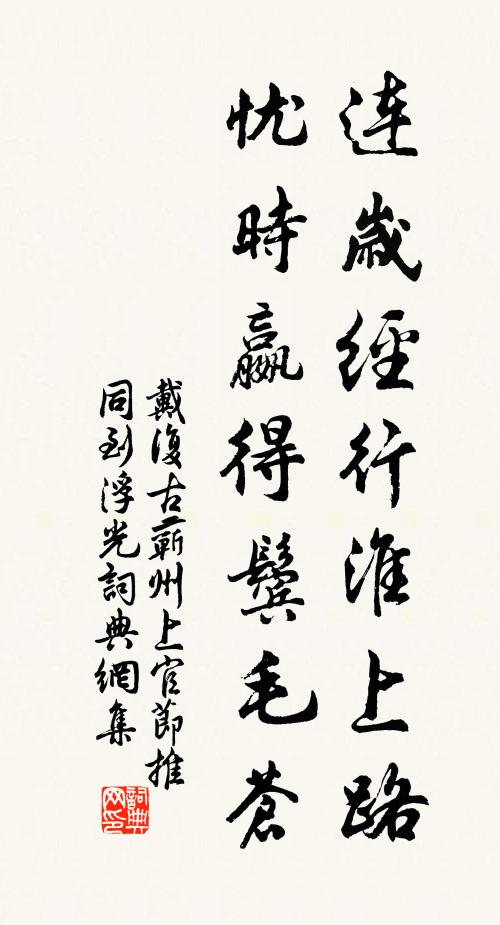 連歲經行淮上路
忧時贏得鬢毛蒼
戴復古蘄州上官節推
同到浮光詞典網集
詞典网印